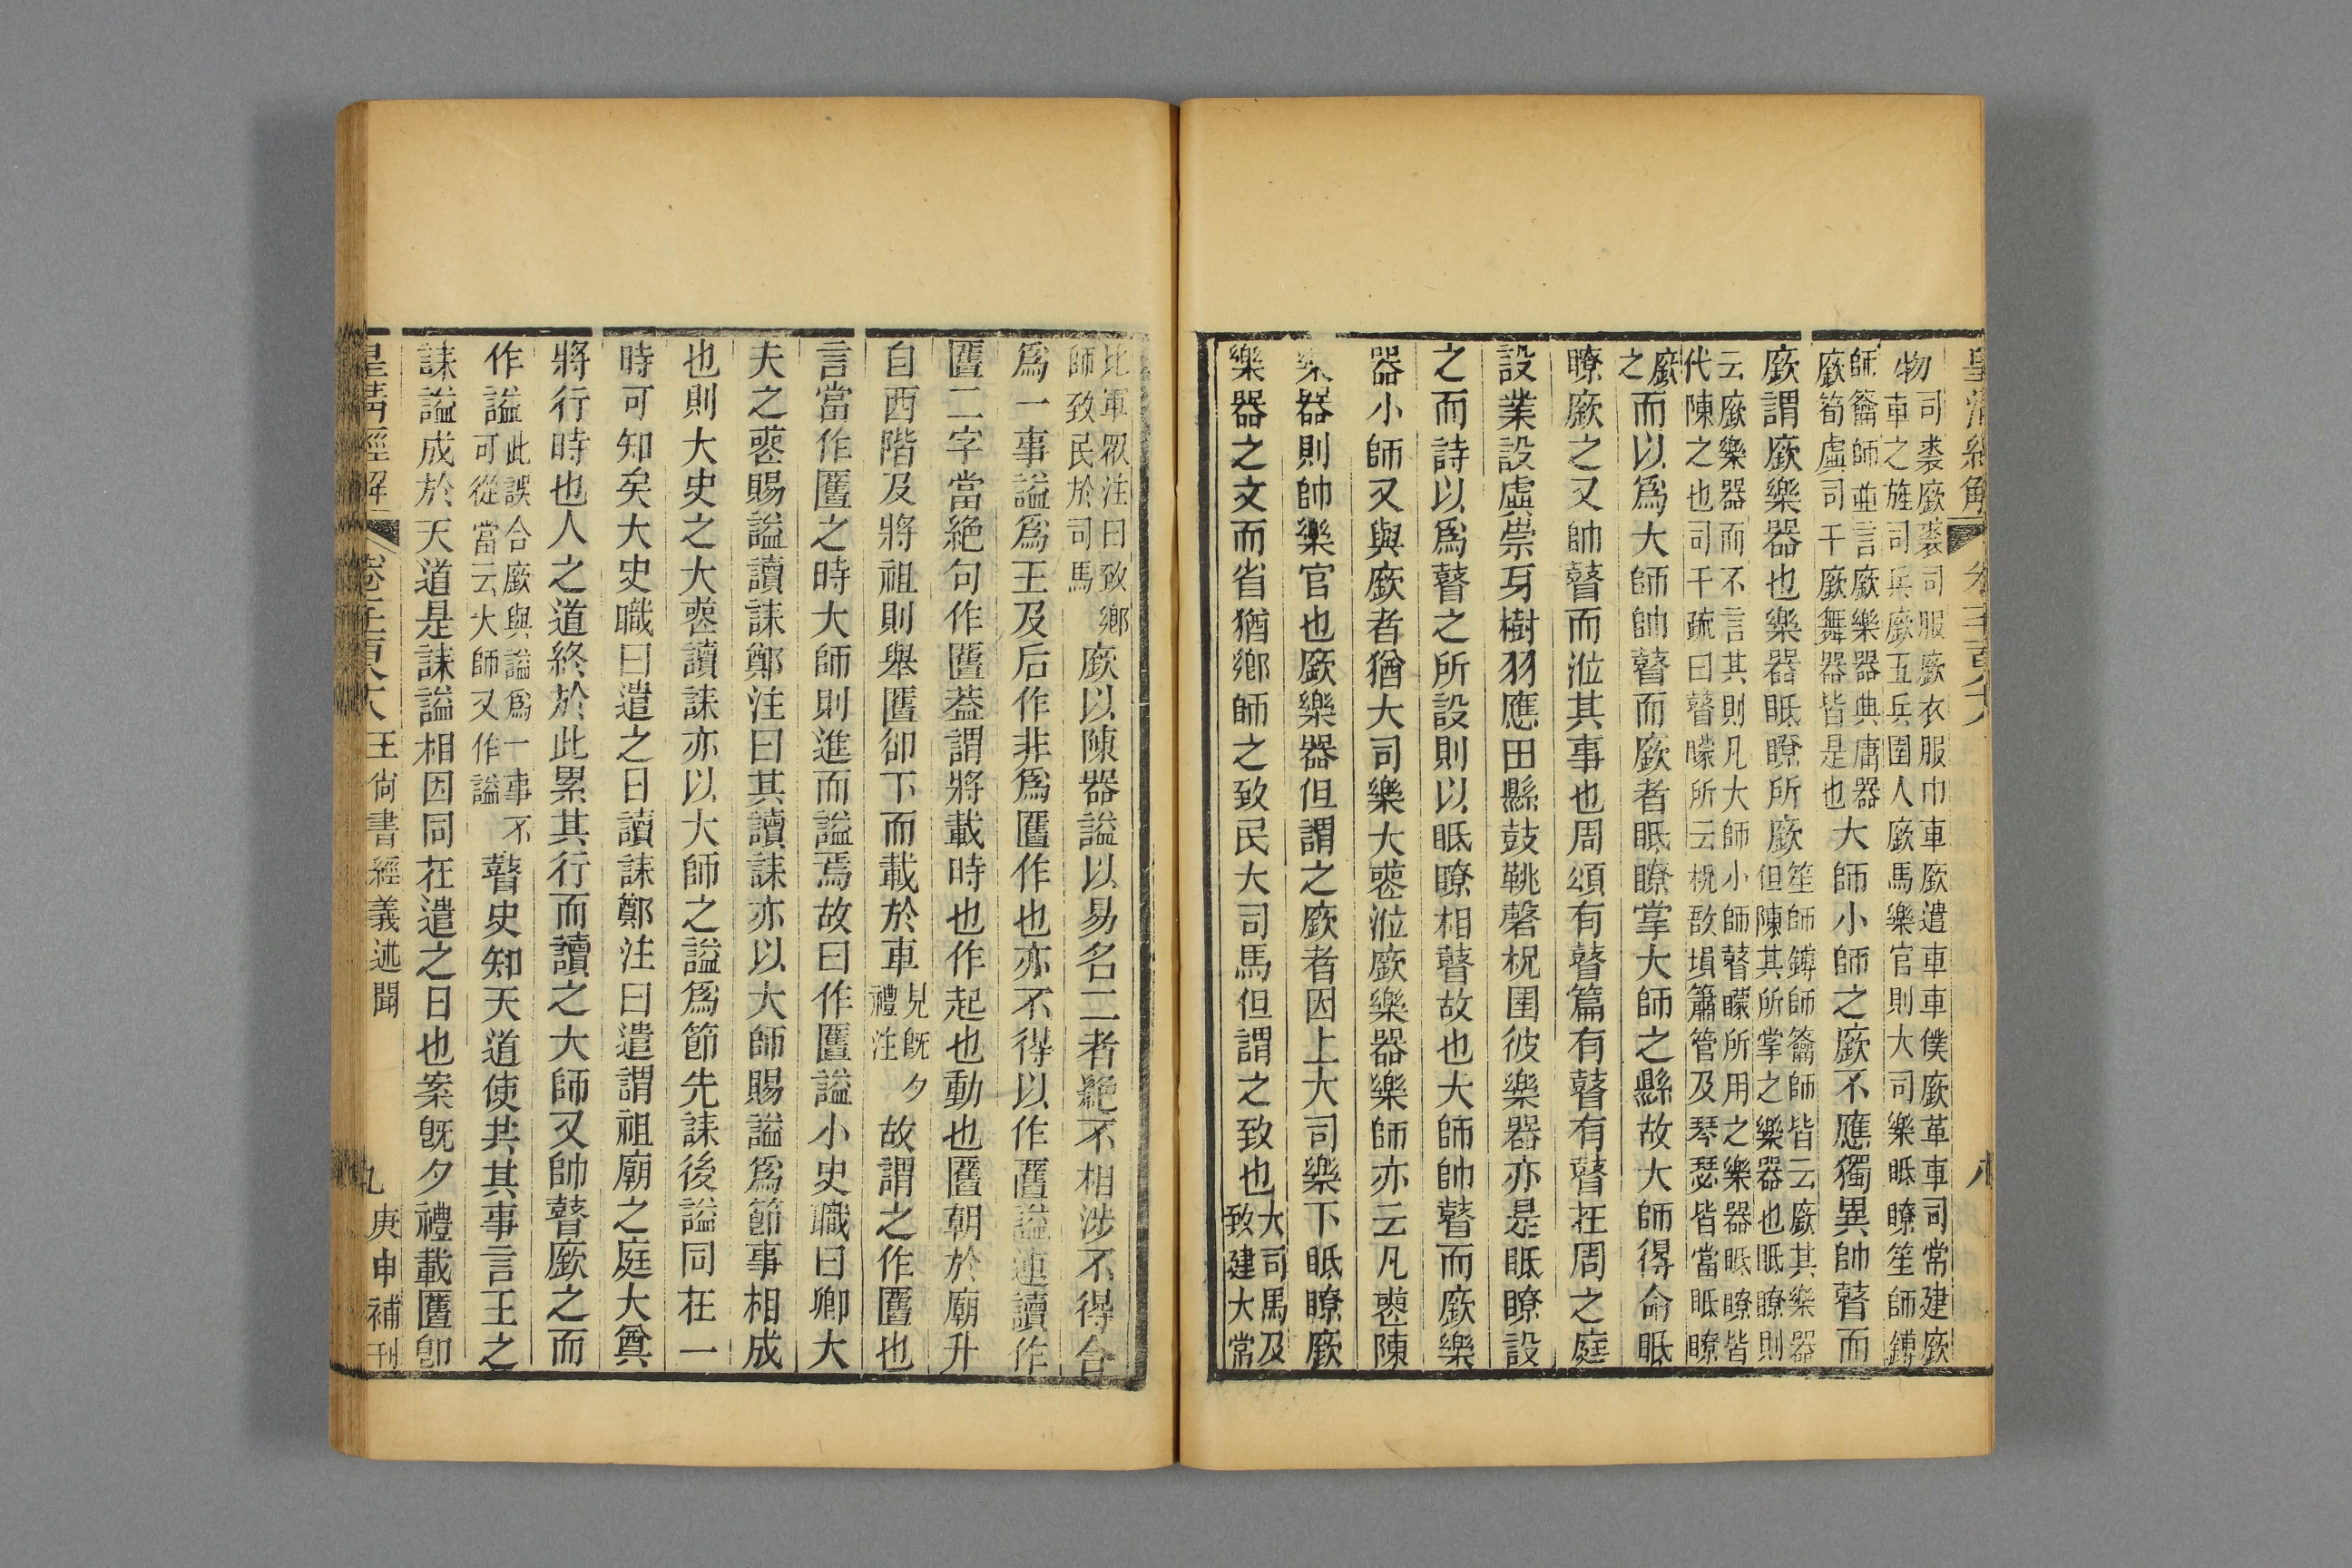 皇清經解 八
物司裘廞裘司服廞衣服巾車廞遣車車僕廞革車司常建廞
車之旌司兵廞五兵圉人廞馬樂官則大司樂眡瞭笙師鎛
師籥師並言廞樂器典庸器
廞筍虡司干廞舞器皆是也大師小師之廞不應獨異帥瞽而
廞謂廞樂器也樂器眡瞭所廞笙師鎛師籥師皆云廞其樂器
但陳其所掌之樂器也眡瞭則
云廞樂器而不言其則凡大師小師瞽矇所用之樂器眡瞭皆
代陳之也司干疏曰瞽矇所云柷敔塤簫管及琴瑟皆當眡瞭
廞
之而以爲大師帥瞽而廞者眡瞭掌大師之縣故大師得命眡
瞭廞之又帥瞽而涖其事也周頌有瞽篇有瞽有瞽在周之庭
設業設虡崇牙樹羽應田縣鼓鞉磬柷圉彼樂器亦是眡瞭設
之而詩以爲瞽之所設則以眡瞭相瞽故也大師帥瞽而廞樂
器小師又與廞者猶大司樂大喪涖廞樂器樂師亦云凡喪陳
樂器則帥樂官也廞樂器但謂之廞者因上大司樂下眡瞭廞
樂器之文而省猶鄉師之致民大司馬但謂之致也大司馬及
致建大常
比軍眾注曰致鄉
師致民於司馬廞以陳器謚以易名二者絕不相涉不得合
爲一事謚爲王及后作非爲匶作也亦不得以作匶謚連讀作
匶二字當絕句作匶葢謂將載時也作起也動也匶朝於廟升
自西階及將祖則舉匶卻下而載於車見旣夕
禮注故謂之作匶也
言當作匶之時大師則進而謚焉故曰作匶謚小史職曰卿大
夫之喪賜謚讀誄鄭注曰其讀誄亦以大師賜謚爲節事相成
也則大史之大喪讀誄亦以大師之謚爲節先誄後謚同在一
時可知矣大史職曰遣之日讀誄鄭注曰遣謂祖廟之庭大奠
將行時也人之道終於此累其行而讀之大師又帥瞽廞之而
作謚此誤合廞與謚爲一事不
可從當云大師又作謚瞽史知天道使共其事言王之
誄謚成於天道是誄謚相因同在遣之日也案旣夕禮載匶卽
皇清經解 王尙書經義述聞 九 庚申補刊